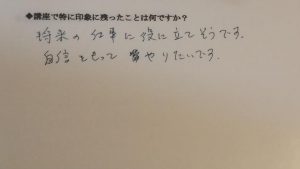 ◆講座で特に印象に残ったことは何ですか?
将来の仕事に役に立てそうです。
自信もって やりたいです。